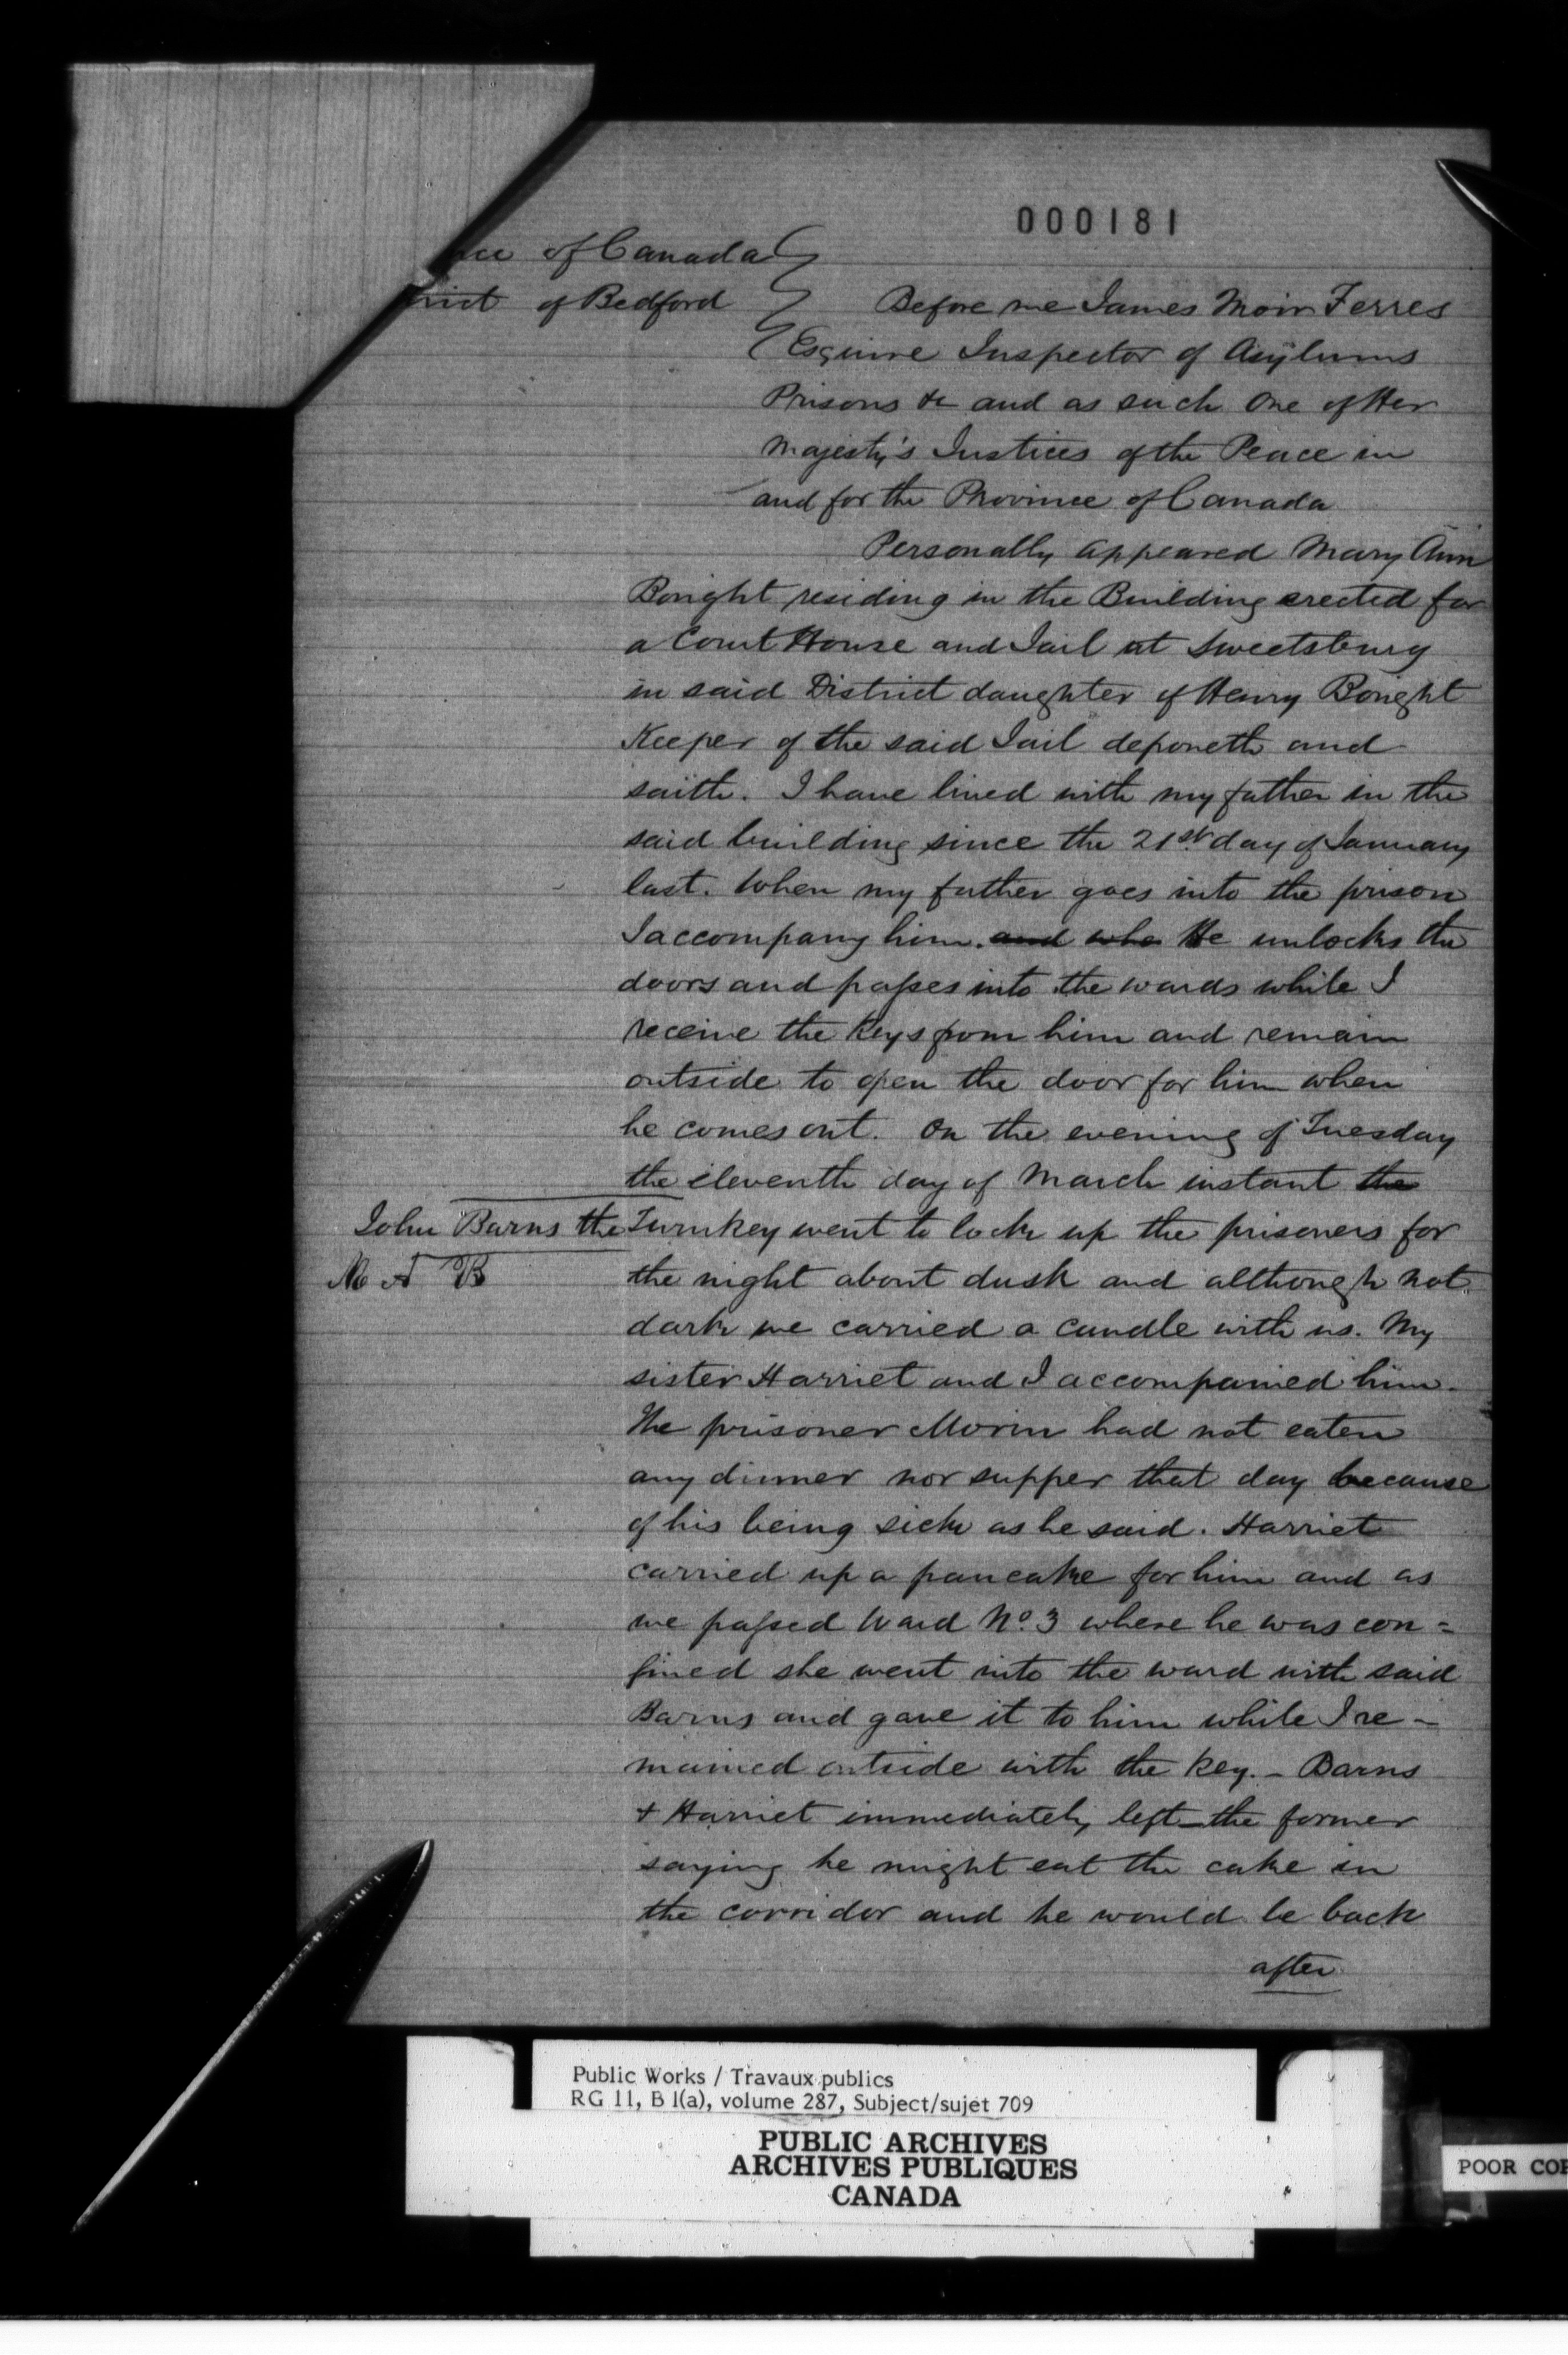 000181
nce of Canada
rict of Bedford
Before me James Moir Ferres
Esquire Inspector of Asylums
Prisons &c and as such One of Her
Majesty's Justices of the Peace in
and for the Province of Canada
Personally appeared Mary Ann
Boright residing in the Building erected for
a Court House and Jail at Sweetsburg
in said District daughter of Henry Boright
Keeper of the said Jail deponeth and
saith. I have lived with my father in the
said building since the 21st. day of January
last. When my father goes into the prison
I accompany him. and who He unlocks the
doors and passes into the wards while I
receive the Keys from him and remain
outside to open the door for him when
he comes out. On the evening of Tuesday
the eleventh day of March instant the
John Barns the Turnkey went to lock up the prisoners for
M A B
the night about dusk and although not
dark we carried a candle with us. My
sister Harriet and I accompanied him.
The prisoner Morin had not eaten
any dinner nor supper that day because
of his being sick as he said. Harriet
carried up a pancake for him and as
we passed Ward No. 3 where he was con=
fined she went into the ward with said
Barns and gave it to him while I re-
mained outside with the key. - Barns
& Harriet immediately left - the former
saying he might eat the cake in
the corridor and he would be back
after
Public Works / Travaux publics
RG 11, B 1(a), volume 287, Subject/sujet 709
PUBLIC ARCHIVES
ARCHIVES PUBLIQUES
CANADA
POOR COP